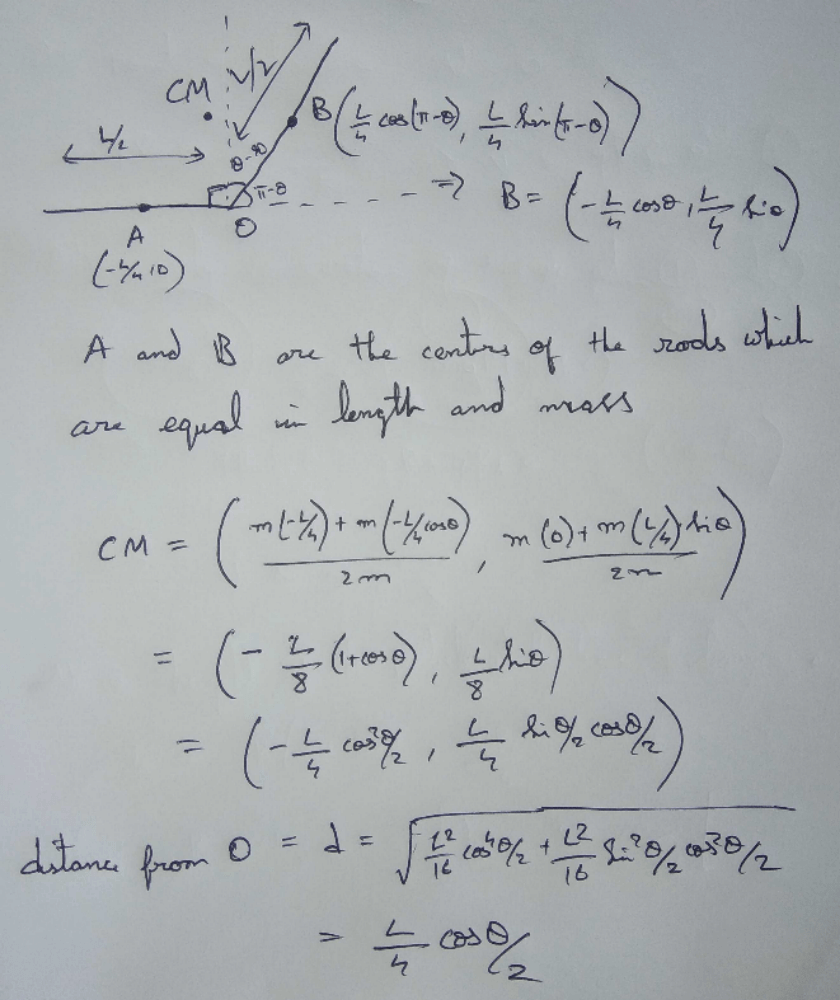 CM
L/2
L/2
θ-90
π-θ
B(L/4 cos(π-θ), L/4 sin(π-θ))
⇒ B = (-L/4 cosθ, L/4 sinθ)
A
O
(-L/4, 0)
A and B are the centers of the rods which
are equal in length and mass
CM = ((m(-L/4) + m(-L/4 cosθ))/2m, (m(0) + m(L/4) sinθ)/2m)
= (-L/8 (1+cosθ), L/8 sinθ)
= (-L/4 cos²θ/2, L/4 sinθ/2 cosθ/2)
distance from O = d = √(L²/16 cos⁴θ/2 + L²/16 sin²θ/2 cos²θ/2)
= L/4 cosθ/2